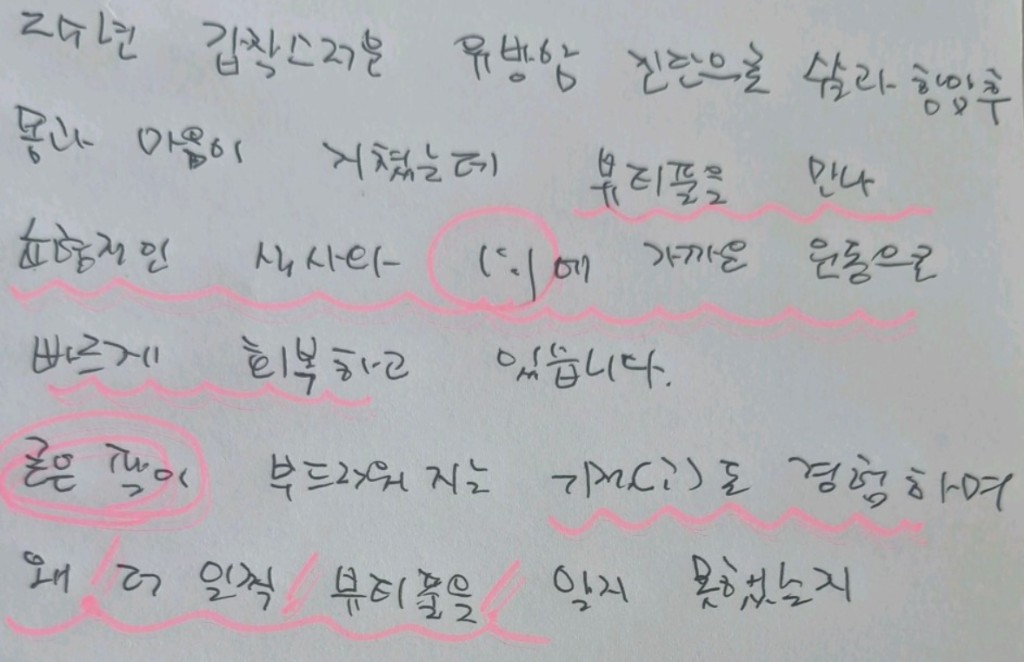 24년 갑작스러운 유방암 진단으로 수술과 항암후
몸과 마음이 지쳤는데 뷰티풀을 만나
균형적인 식사와 (?)에 가까운 운동으로
빠르게 회복하고 있습니다.
굳은 목이 부드러워 지는 기적(?)도 경험하며
왜 더 일찍 뷰티풀을 알지 못했는지